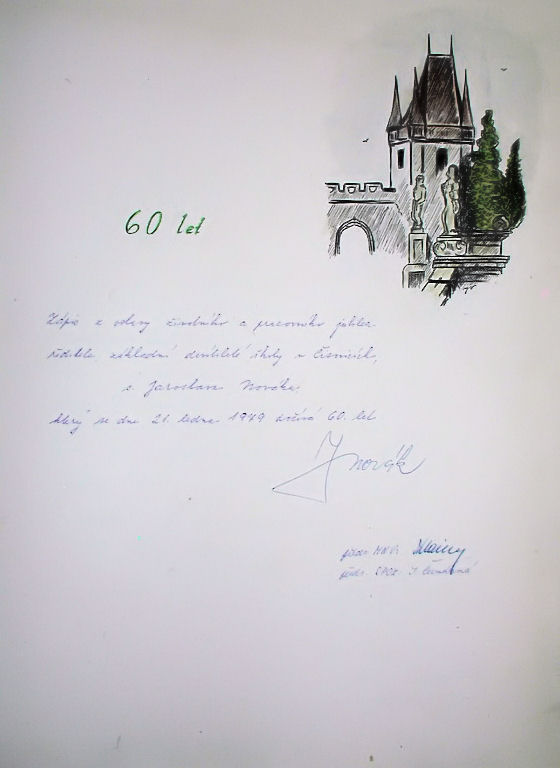 60 let
Zápis z oslavy životního a pracovního jubilea
ředitele základní devítileté školy v
s. Jaroslava Nováka,
který se dne 21. ledna 1979 dožívá 60. let
J Novák
předs. MNV:
předs. SPOZ: J.